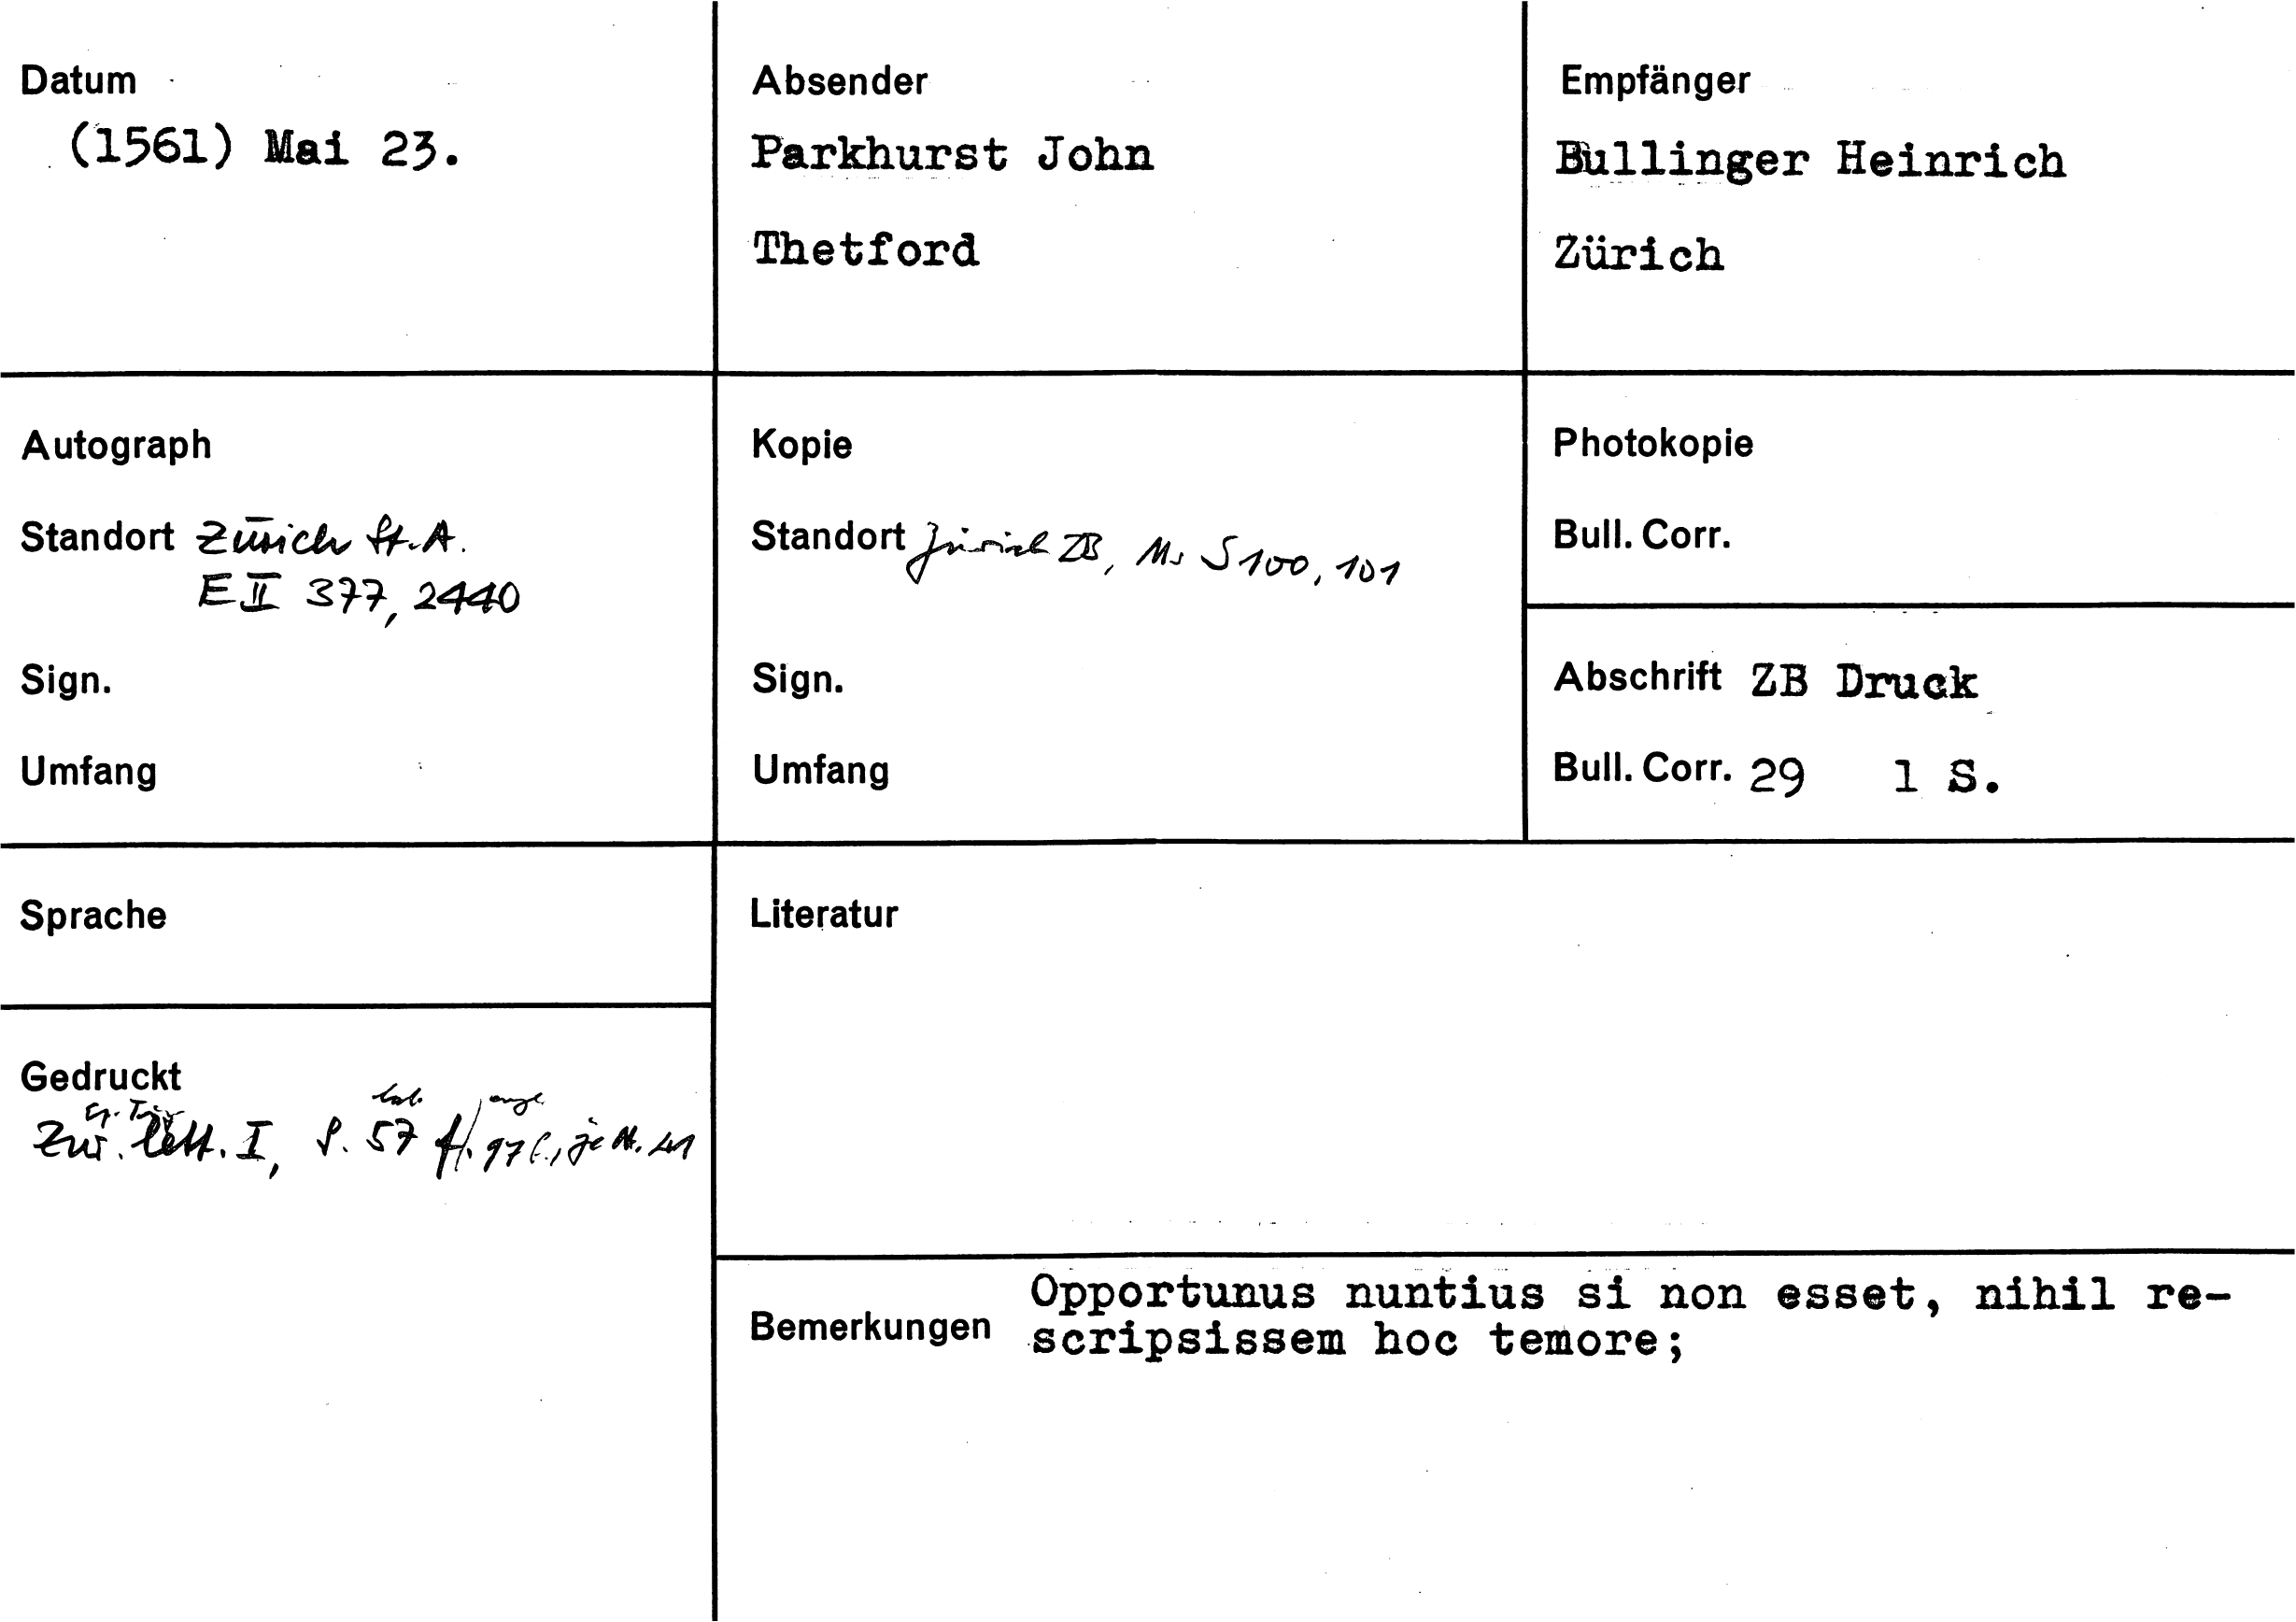 Datum
(1561) Mai 23.
Absender
Parkhurst John
Thetford
Empfänger
Bullinger Heinrich
Zürich
Autograph
Standort Zürich St.A.
E II 377, 2440
Sign.
Umfang
Kopie
Standort Zürich ZB, Ms S 100, 101
Sign.
Umfang
Photokopie
Bull. Corr.
Abschrift ZB Druck
Bull. Corr. 29 1 S.
Sprache
Literatur
Gedruckt
Ep. Tig. lat. engl.
Zür. Lett. I, S. 57 f. 97 f., je Nr. 41
Bemerkungen
Opportunus nuntius si non esset, nihil re-
scripsissem hoc temore;